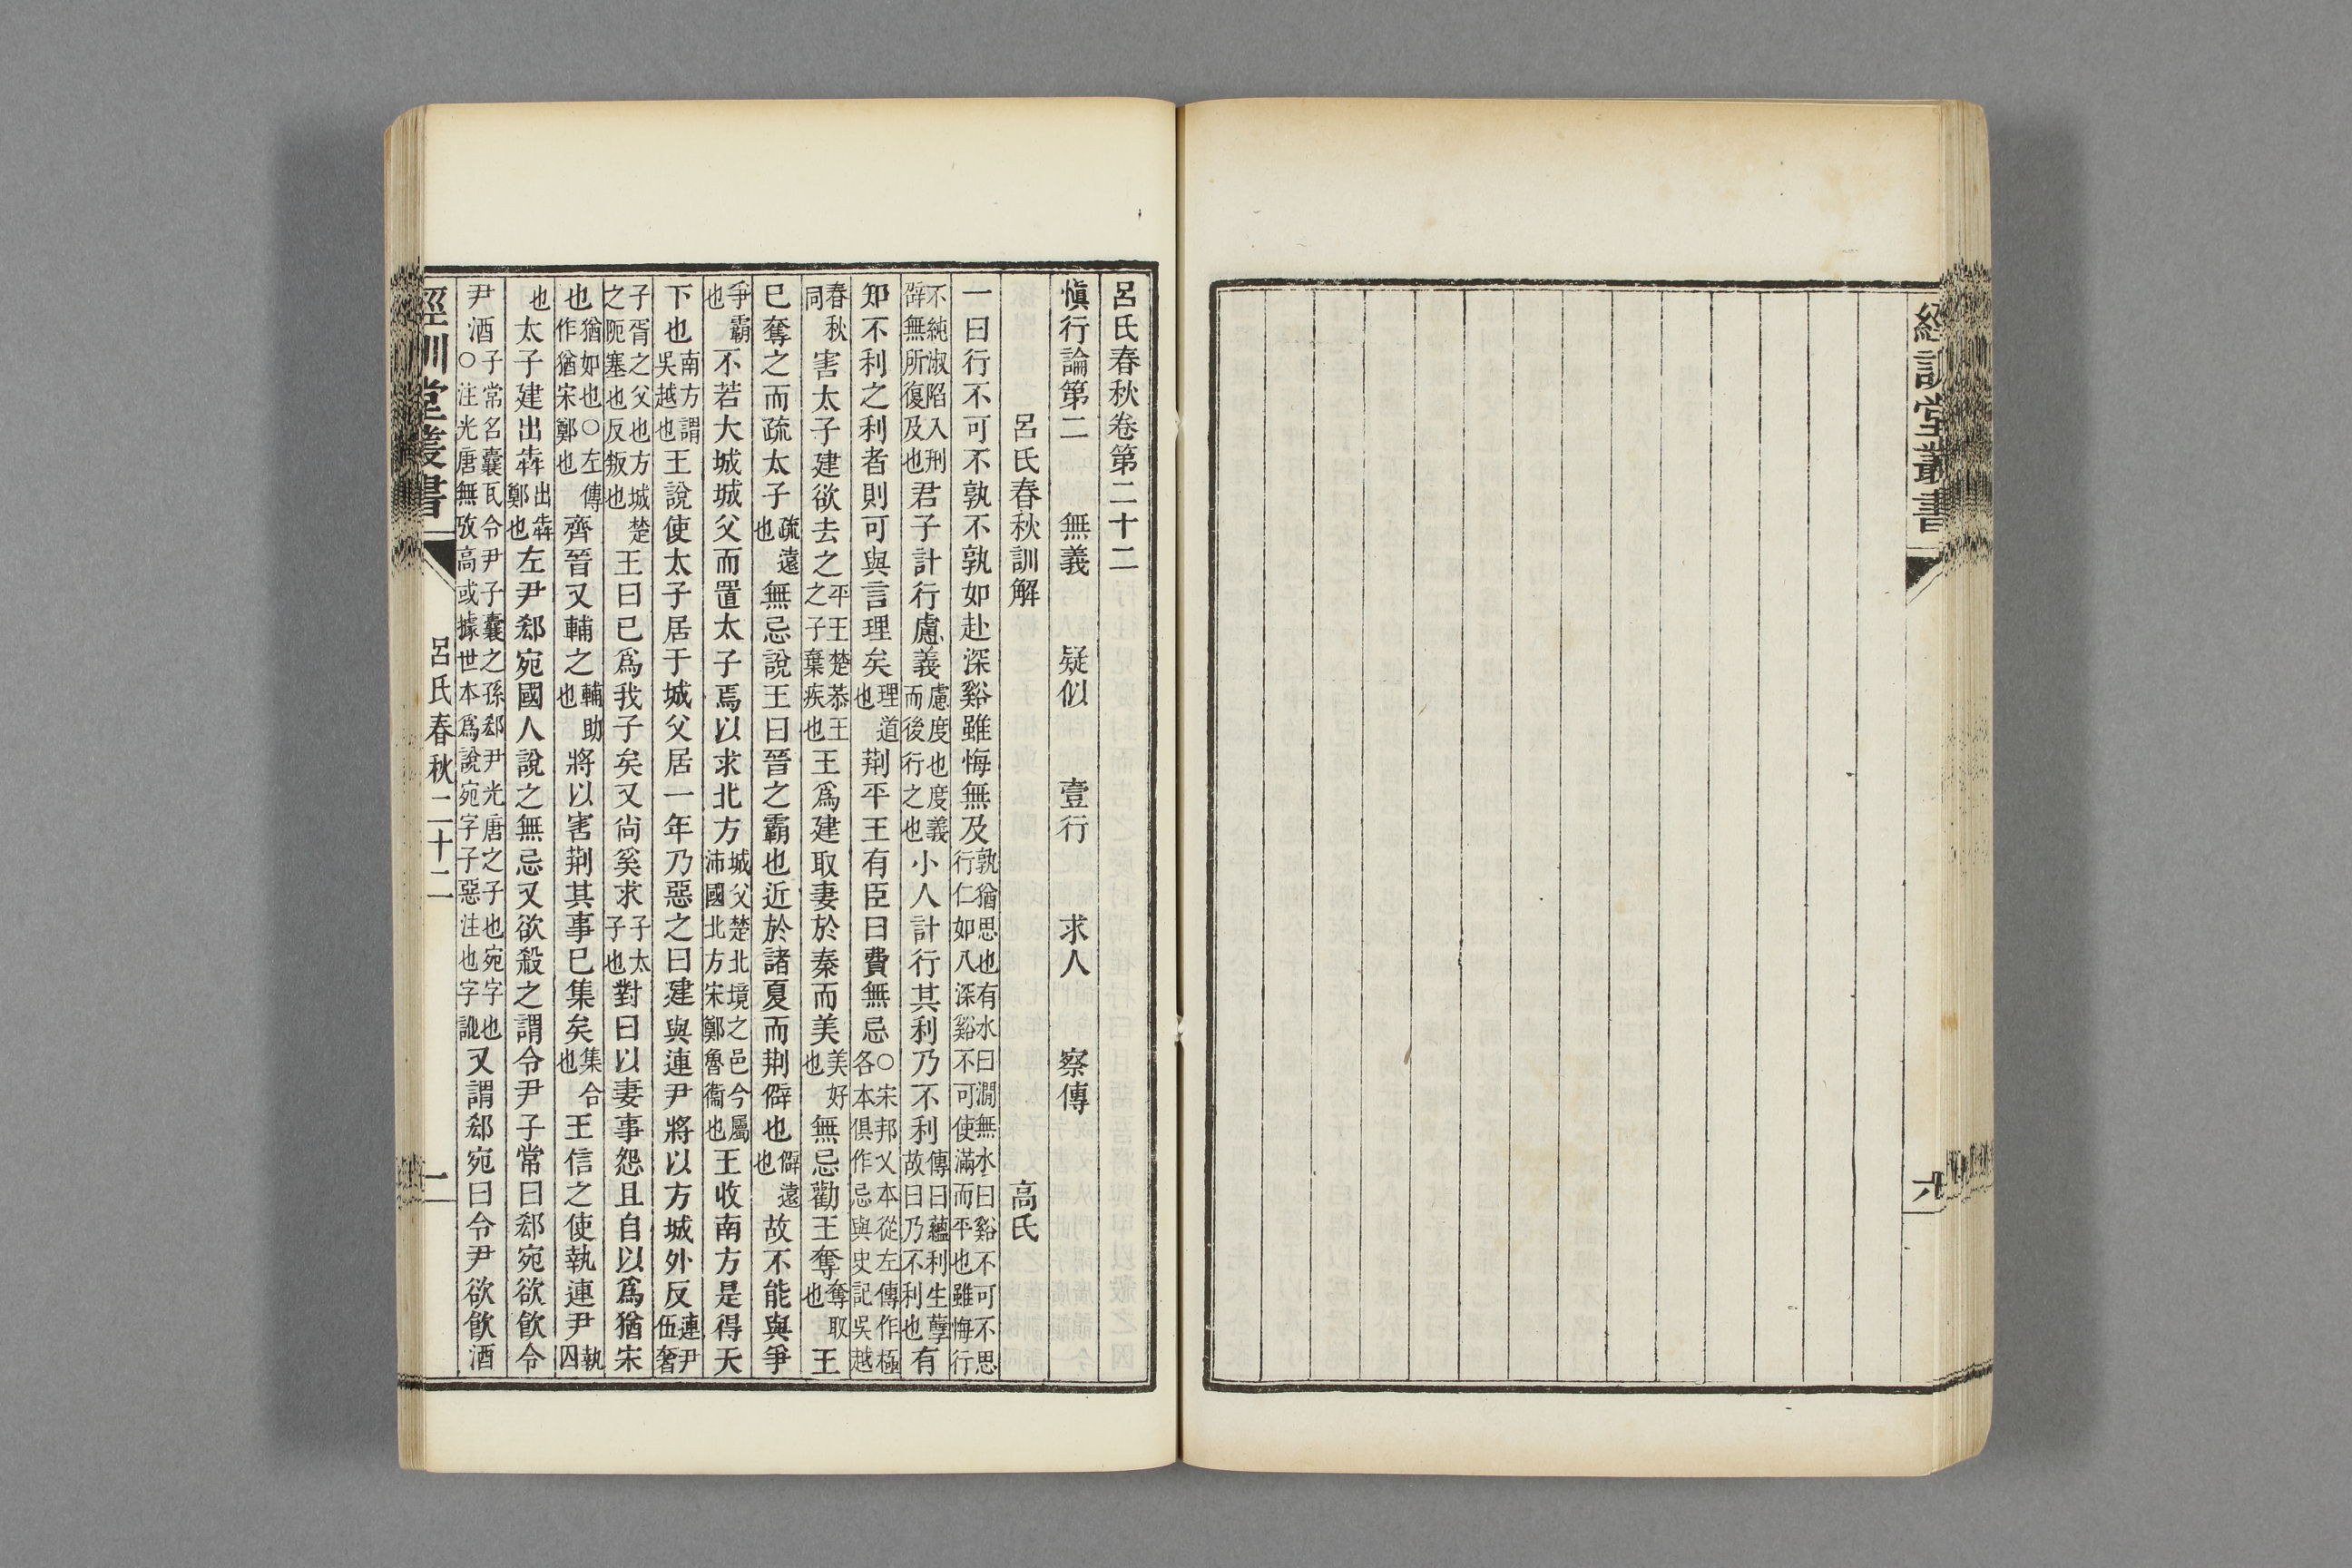 經訓堂叢書
六
呂氏春秋卷第二十二
慎行論第二 無義 疑似 壹行 求人 察傳
呂氏春秋訓解 高氏
一曰行不可不孰不孰如赴深谿雖悔無及孰猶思也有水曰澗無水曰谿不可不思行仁如入深谿不可使滿而平也雖悔行
不純淑陷入刑辟無所復及也君子計行慮義慮度也度義而後行之也小人計行其利乃不利傳曰蘊利生孽故曰乃不利也有
知不利之利者則可與言理矣理道也荆平王有臣曰費無忌○宋邦乂本從左傳作極各本俱作忌與史記吳越
春秋同害太子建欲去之平王楚恭王之子棄疾也王爲建取妻於秦而美美好也無忌勸王奪奪取也王
已奪之而疏太子疏遠也無忌說王曰晉之霸也近於諸夏而荆僻也僻遠也故不能與爭
爭霸也不若大城城父而置太子焉以求北方城父楚北境之邑今屬沛國北方宋鄭魯衞也王收南方是得天
下也南方謂吳越也王說使太子居于城父居一年乃惡之曰建與連尹將以方城外反連尹伍奢
子胥之父也方城楚之阨塞也反叛也王曰已爲我子矣又尚奚求子太子也對曰以妻事怨且自以爲猶宋
也猶如也○左傳作猶宋鄭也齊晉又輔之輔助也將以害荆其事已集矣集合也王信之使執連尹執囚
也太子建出犇出犇鄭也左尹郄宛國人說之無忌又欲殺之謂令尹子常曰郄宛欲飲令
尹酒子常名囊瓦令尹子囊之孫郄尹光唐之子也宛字也○注光唐無攷高或據世本爲說宛字子惡注也字譌又謂郄宛曰令尹欲飲酒
經訓堂叢書
呂氏春秋二十二
一